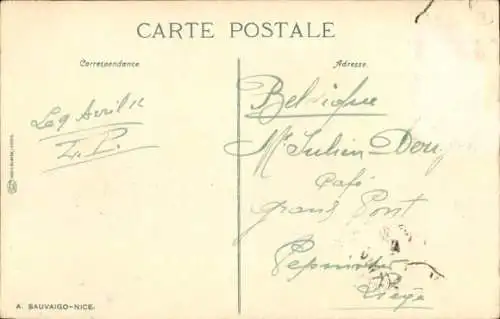 CARTE POSTALE
Correspondance
Adresse.
Le 9 Avril 12
L. P.
Belgique
Mr Julien
Café
Grand Pont
Pepinster
Liège
A. SAUVAIGO-NICE.